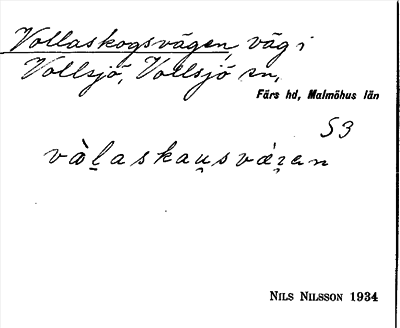 Vollaskogsvägen, väg i
Vollsjö, Vollsjö sn,
Färs hd, Malmöhus län
53
vàlaskau̯sváʒen
NILS NILSSON 1934